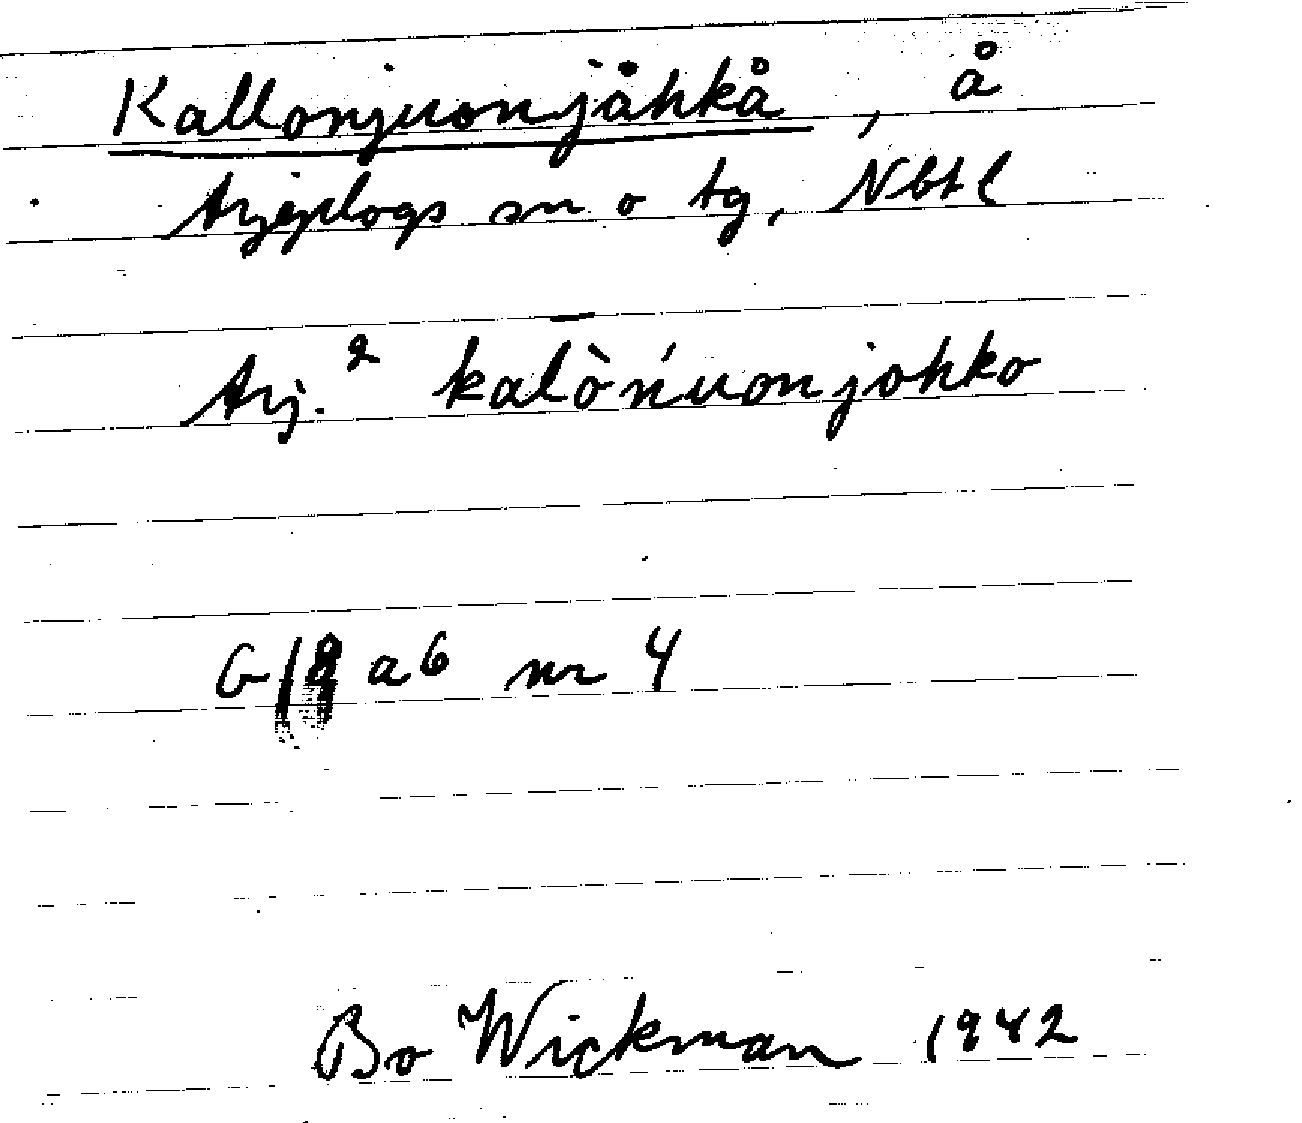 Kallonjuonjåhkå, å
Arjeplogs sn o tg, Nbtl
Arj.² kalò̄ńuonjohko
G18 a6 nr 4
Bo Wickman 1942